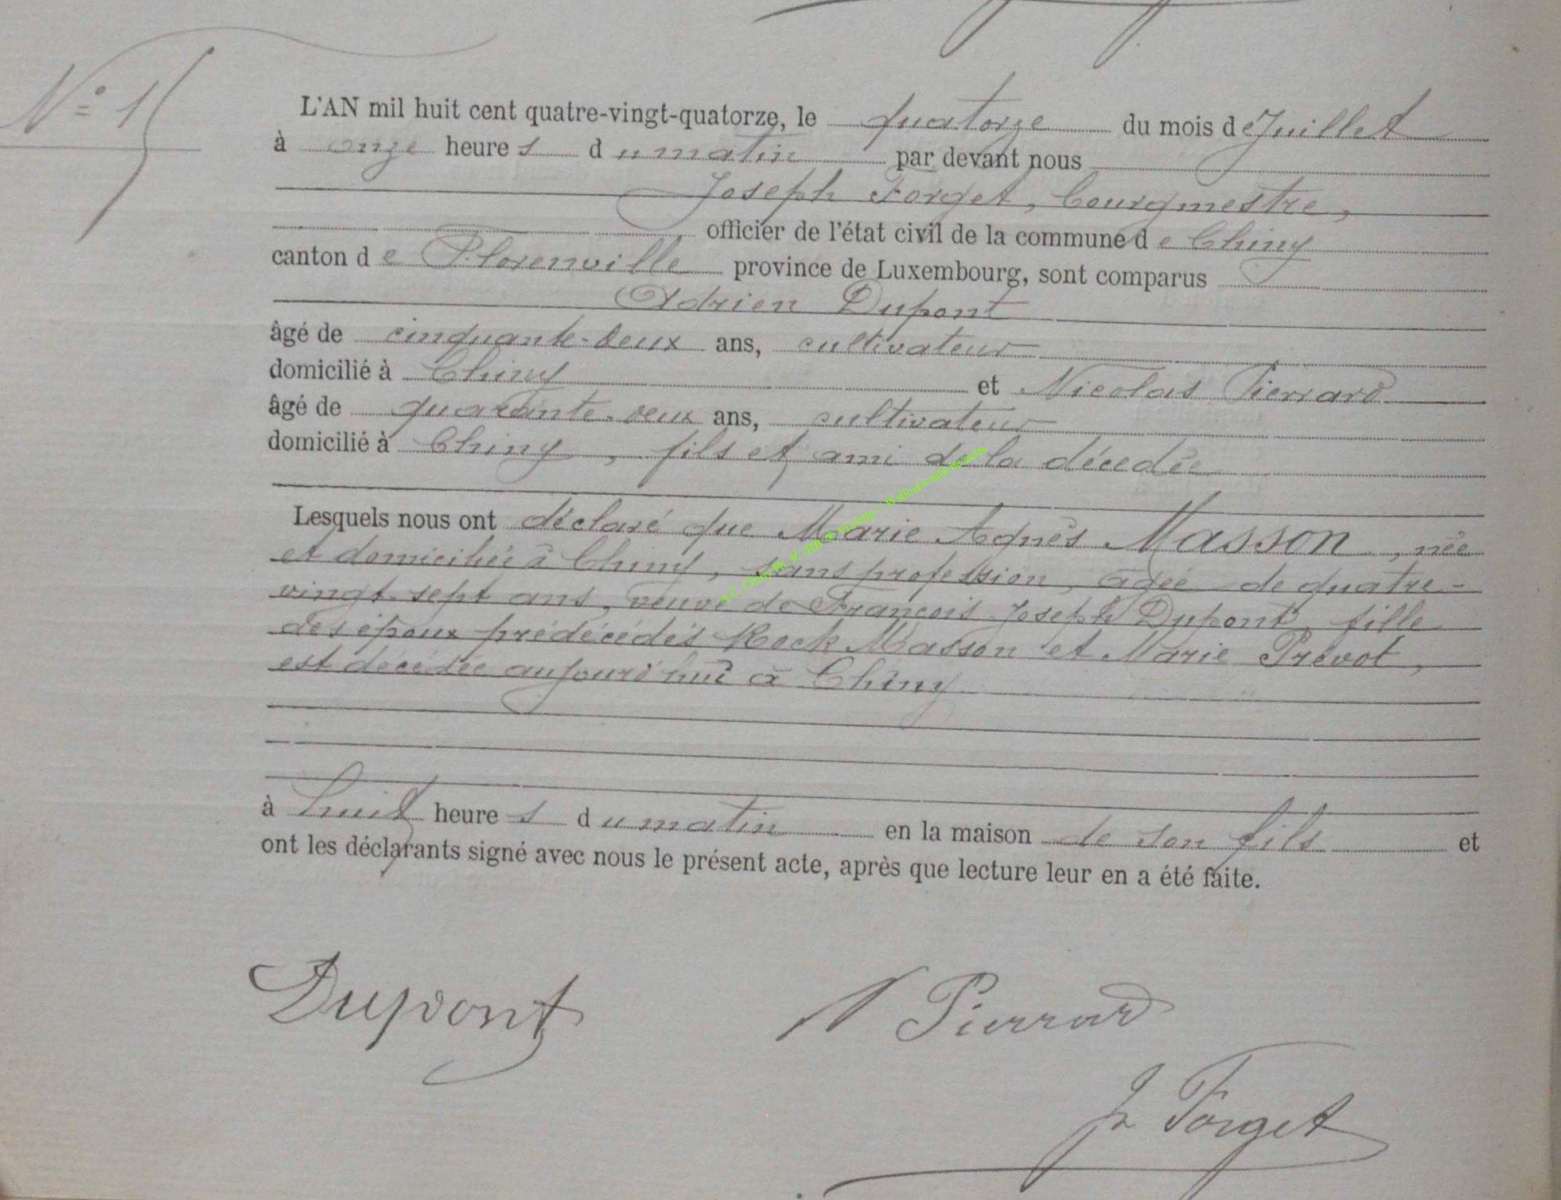 N° 15
L'AN mil huit cent quatre-vingt-quatorze, le quatorze du mois de Juillet
à onze heures du matin par devant nous
Joseph Forget, bourgmestre,
officier de l'état civil de la commune de Chiny
canton de Florenville province de Luxembourg, sont comparus
Adrien Dupont
âgé de cinquante-deux ans, cultivateur
domicilié à Chiny et Nicolas Pierrard
âgé de quarante-deux ans, cultivateur
domicilié à Chiny, fils et ami de la décédée
Lesquels nous ont déclaré que Marie Agnès Masson, née
et domiciliée à Chiny, sans profession, âgée de quatre-
vingt-sept ans, veuve de François Joseph Dupont, fille
des époux prédécédés Rock Masson et Marie Prévot,
est décédée aujourd'hui à Chiny
à huit heures du matin en la maison de son fils et
ont les déclarants signé avec nous le présent acte, après que lecture leur en a été faite.
Dupont N Pierrard
J. Forget